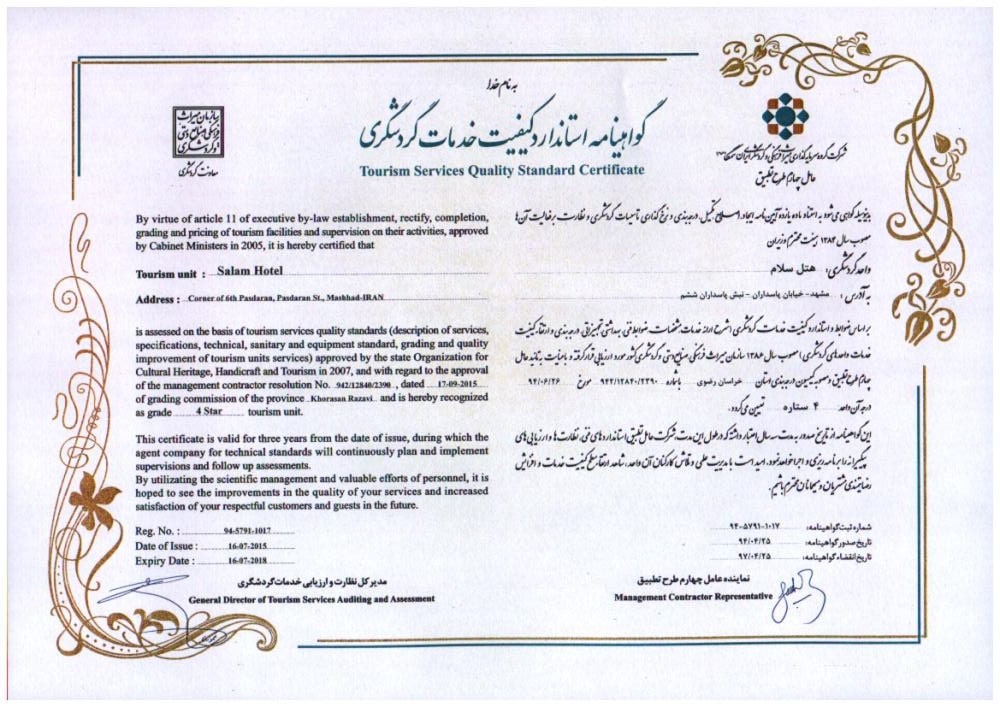 به نام خدا
گواهینامه استاندارد کیفیت خدمات گردشگری
Tourism Services Quality Standard Certificate
سازمان میراث
فرهنگی صنایع دستی
و گردشگری
معاونت گردشگری
شرکت گروه سرمایه گذاری میراث فرهنگی و گردشگری ایران
عامل چهارم طرح تطبیق
By virtue of article 11 of executive by-law establishment, rectify, completion,
grading and pricing of tourism facilities and supervision on their activities, approved
by Cabinet Ministers in 2005, it is hereby certified that
Tourism unit : Salam Hotel
Address : Corner of 6th Pasdaran, Pasdaran St., Mashhad-IRAN
is assessed on the basis of tourism services quality standards (description of services,
specifications, technical, sanitary and equipment standard, grading and quality
improvement of tourism units services) approved by the state Organization for
Cultural Heritage, Handicraft and Tourism in 2007, and with regard to the approval
of the management contractor resolution No. 942/12840/2390 , dated 17-09-2015
of grading commission of the province Khorasan Razavi and is hereby recognized
as grade 4 Star tourism unit.
This certificate is valid for three years from the date of issue, during which the
agent company for technical standards will continuously plan and implement
supervisions and follow up assessments.
By utilizing the scientific management and valuable efforts of personnel, it is
hoped to see the improvements in the quality of your services and increased
satisfaction of your respectful customers and guests in the future.
Reg. No. : 94-5791-1017
Date of Issue : 16-07-2015
Expiry Date : 16-07-2018
مدیر کل نظارت و ارزیابی خدمات گردشگری
General Director of Tourism Services Auditing and Assessment
بدینوسیله گواهی می شود به استناد ماده یازده آیین نامه ایجاد، اصلاح، تکمیل، درجه بندی و نرخ گذاری تاسیسات گردشگری و نظارت بر فعالیت آن ها
مصوب سال ۱۳۸۴ هیئت محترم وزیران
واحد گردشگری: هتل سلام
به آدرس: مشهد - خیابان پاسداران - نبش پاسداران ششم
بر اساس ضوابط و استاندارد کیفیت خدمات گردشگری (شرح ارائه خدمات، مشخصات، ضوابط فنی، بهداشتی، تجهیزاتی، درجه بندی و ارتقاء کیفیت
خدمات واحدهای گردشگری) مصوب سال ۱۳۸۶ سازمان میراث فرهنگی، صنایع دستی و گردشگری کشور مورد ارزیابی قرار گرفته و با عنایت به تائید عامل
چهارم طرح تطبیق و مصوبه کمیسیون درجه بندی استان خراسان رضوی باشماره ۹۴۲/۱۲۸۴۰/۲۳۹۰ مورخ ۹۴/۰۶/۲۶
درجه آن واحد ۴ ستاره تعیین می گردد.
این گواهینامه از تاریخ صدور به مدت سه سال اعتبار داشته که در طول این مدت، شرکت عامل تطبیق استانداردهای فنی، نظارت ها و ارزیابی های
پیگیرانه را برنامه ریزی و اجرا خواهد نمود. امید است با مدیریت علمی و تلاش کارکنان آن واحد، شاهد ارتقا سطح کیفیت خدمات و افزایش
رضایتمندی مشتریان و میهمانان محترم باشیم.
شماره ثبت گواهینامه: ۹۴-۵۷۹۱-۱۰۱۷
تاریخ صدور گواهینامه: ۹۴/۰۴/۲۵
تاریخ انقضاء گواهینامه: ۹۷/۰۴/۲۵
نماینده عامل چهارم طرح تطبیق
Management Contractor Representative